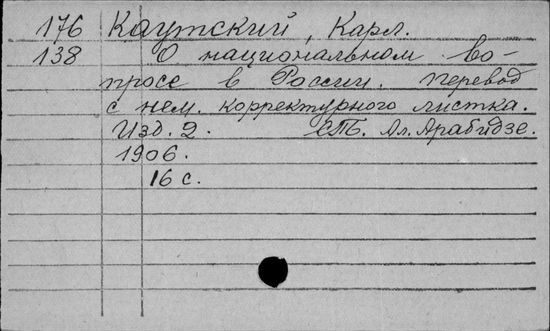 176 Каутский, Карл.
138 О национальном во-
просе в России. Перевод
с нем. корректурного листка.
Изд. 2. СПБ. Ал. Арабидзе.
1906.
16 с.